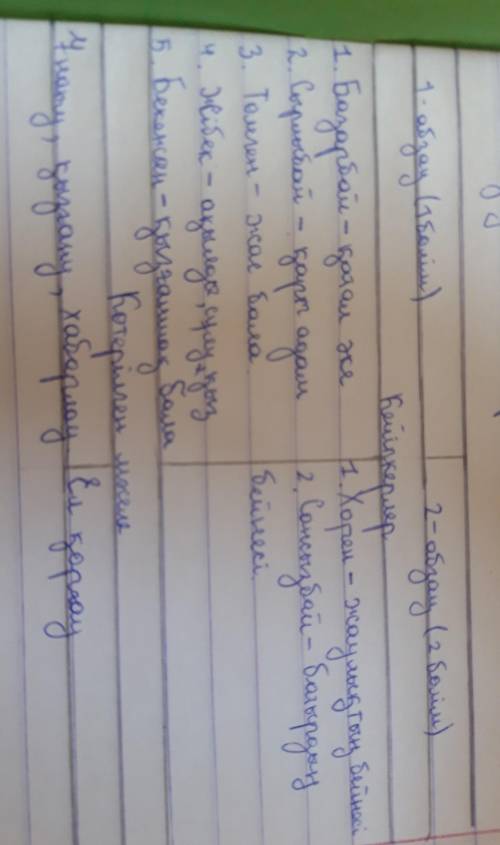 1-абзац (1 бөлім) 2-абзац (2 бөлім)
Кейіпкерлер
1. Базарбай - қатал әке 1. Хорен - жаулықтың бейнесі
2. Сырлыбай - қарт адам 2. Сансызбай - батырдың
3. Төлеген - жас бала бейнесі
4. Жібек - ақылды, сұлу қыз
5. Бекежан - қызғаншақ бала
Көтерілген мәселе
Ұнату, қызғану, хабарлау Ел қорғау